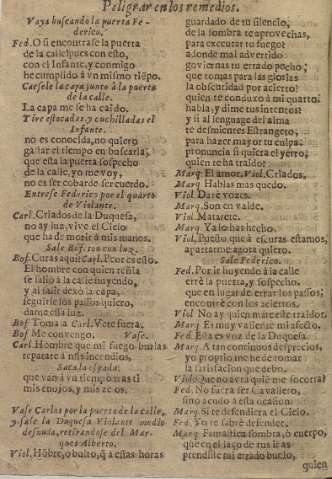 Peligrar en los remedios.
Vaya buscando la puerta Fe-
derico.
Fed. O si encontrase la puerta
de la calle, pues con esto,
con el Infante, y conmigo
he cumplido á vn mismo tiẽpo.
Caesele la capa junto à la puerta
de la calle.
La capa me se ha caido.
Tire estocadas, y cuchilladas el
Infante.
no es conocida, no quiero
gastar el tiempo en buscarla,
que esta la puerta sospecho
de la calle, yo me voy,
no es ser cobarde ser cuerdo.
Entrese Federico por el quarto
de Violante.
Carl. Criados de la Duquesa,
no ay luz, vive el Cielo
que ha de morir à mis manos.
Sale Bof. con vna luz.
Bof. Curas aqui? Carl. Peor es esto.
El hombre con quien reñia
se salió à la calle huyendo,
y al salir dexó la capa,
seguirle los passos quiero,
dame essa luz.
Bof. Toma. Carl. Vete fuera.
Bof. Me convengo. Vase.
Carl. Hombre, que mi fuego burlas
reparate à mis incendios,
Saca la espada.
que van à vn tiempo tras ti
mis enojos, y mis zelos.
Vase Carlos por la puerta de la calle,
y sale la Duquesa Violante medio
desnuda, retirandose del Mar-
ques Alberto.
Viol. Hõbre, o bulto, q̃ à estas horas
guardado de tu silencio,
de la sombra te aprovechas,
para executar tu fuego
adonde mal advertido
goviernas tu errado pecho;
que tomas para las glorias
la obscuridad por acierto:
quien te conduxo à mi quarto?
habla, y dime tus intentos:
y si al lenguage del alma
te desmientes Estrangero,
para hazer mayor tu culpa
pronuncia si quiera el yerro;
quien te ha traido?
Marq. El amor. Viol. Criados.
Marq. Hablas mas quedo.
Viol. Darè vozes.
Marq. Son en valde.
Viol. Matarete.
Marq. Ya lo has hecho.
Viol. Puesto que à escuras estamos,
apartarme agora quiero.
Sale Federico.
Fed. Por ir huyendo à la calle
errè la puerta, y sospecho,
que en lugar de errar los passos,
encontrè con los aciertos.
Viol. No ay quien mate este traidor.
Marq. Es muy valiente mi afecto.
Fed. Esta es voz de la Duquesa.
Marq. A tan continuos desprecios,
yo proprio me he de tomar
la satisfacion que debo.
Viol. Que no avrà quiẽ me socorra!
Fed. No harà ser Cavallero,
sino acudo à esta ocasion.
Marq. Si te defendiera el Cielo.
Fed. Yo te sabrè defender.
Marq. Fantastica sombra, ò cuerpo,
que en el lazo de tus iras
prendiste mi errado buelo,
quien